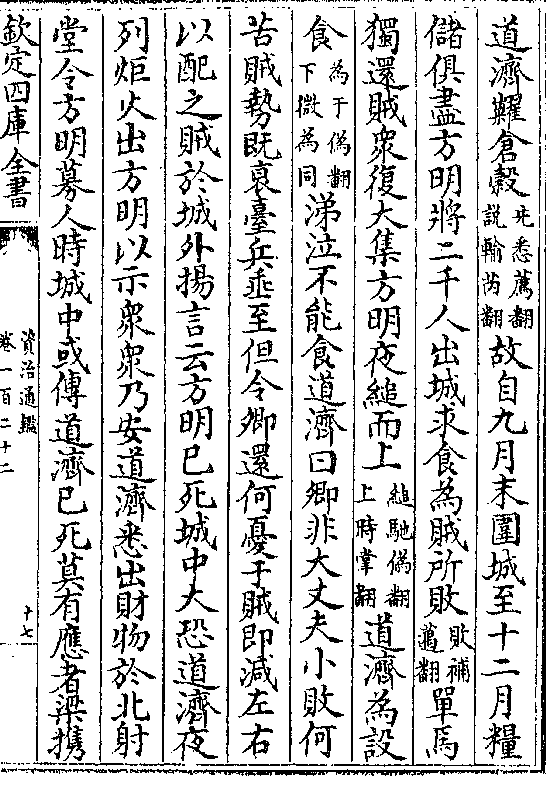 道濟糶倉穀先悉薦翻說輸芮翻故自九月末圍城至十二月糧
儲俱盡方明將二千人出城求食為賊所敗敗補邁翻單馬
獨還賊衆復大集方明夜縋而上縋馳偽翻上時掌翻道濟為設
食為于偽翻下微為同涕泣不能食道濟曰卿非大丈夫小敗何
苦賊勢既衰臺兵垂至但令卿還何憂于賊即減左右
以配之賊於城外揚言云方明已死城中大恐道濟夜
列炬火出方明以示衆衆乃安道濟悉出財物於北射
堂令方明募人時城中或傳道濟已死莫有應者梁攜
欽定四庫全書
資治通鑑
卷一百二十二
十七